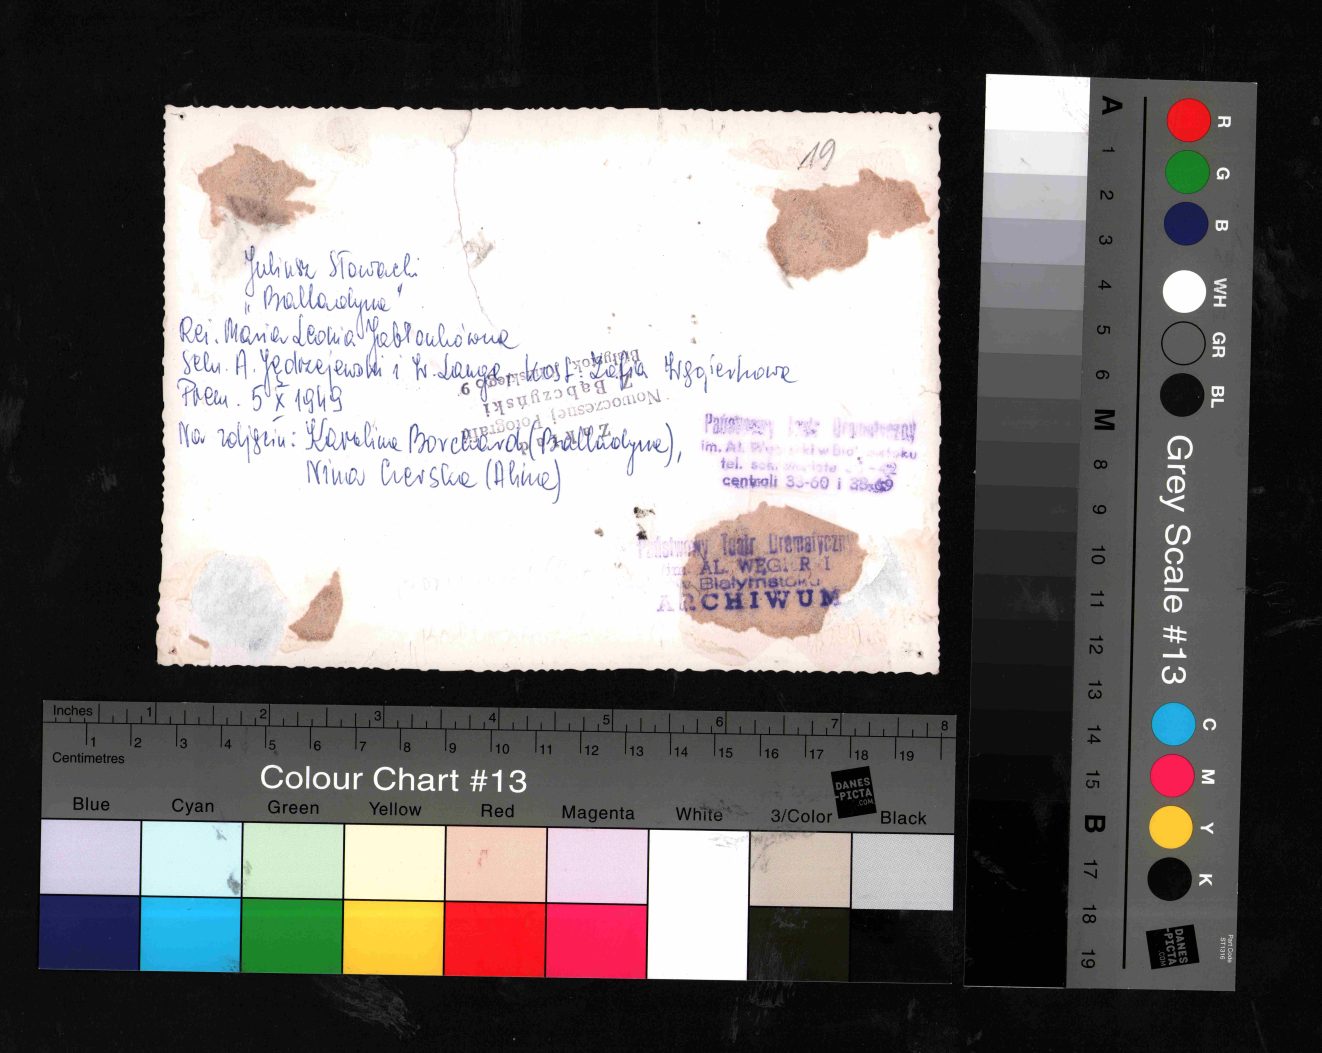 19
Juliusz Słowacki
"Balladyna"
Reż. Maria Leonia Jabłonkówna
Scen. A. Jędrzejewski i Lange, kost. Zofia Węgierkowa
Prem. 5 X 1949
Na zdjęciu: Karolina Borchard (Balladyna),
Nina Czerska (Alina)
Zakład
Nowoczesnej Fotografii
Z. Bąbczyński
Białystok
9
Państwowy Teatr Dramatyczny
im. Al.
tel. sek.
centrali 33-60 i
Państwowy Teatr Dramatyczny
im. AL. WĘGI R I
w Białymstoku
ARCHIWUM
Inches 1 2 3 4 5 6 7 8
1 2 3 4 5 6 7 8 9 10 11 12 13 14 15 16 17 18 19
Centimetres
Colour Chart #13
DANES
-PICTA
.COM
Blue Cyan Green Yellow Red Magenta White 3/Color Black
A 1 2 3 4 5 6 M 8 9 10 11 12 13 14 15 B 17 18 19
R G B WH GR BL
Grey Scale #13
C M Y K
DANES
-PICTA
.COM
Part Code
ST1316